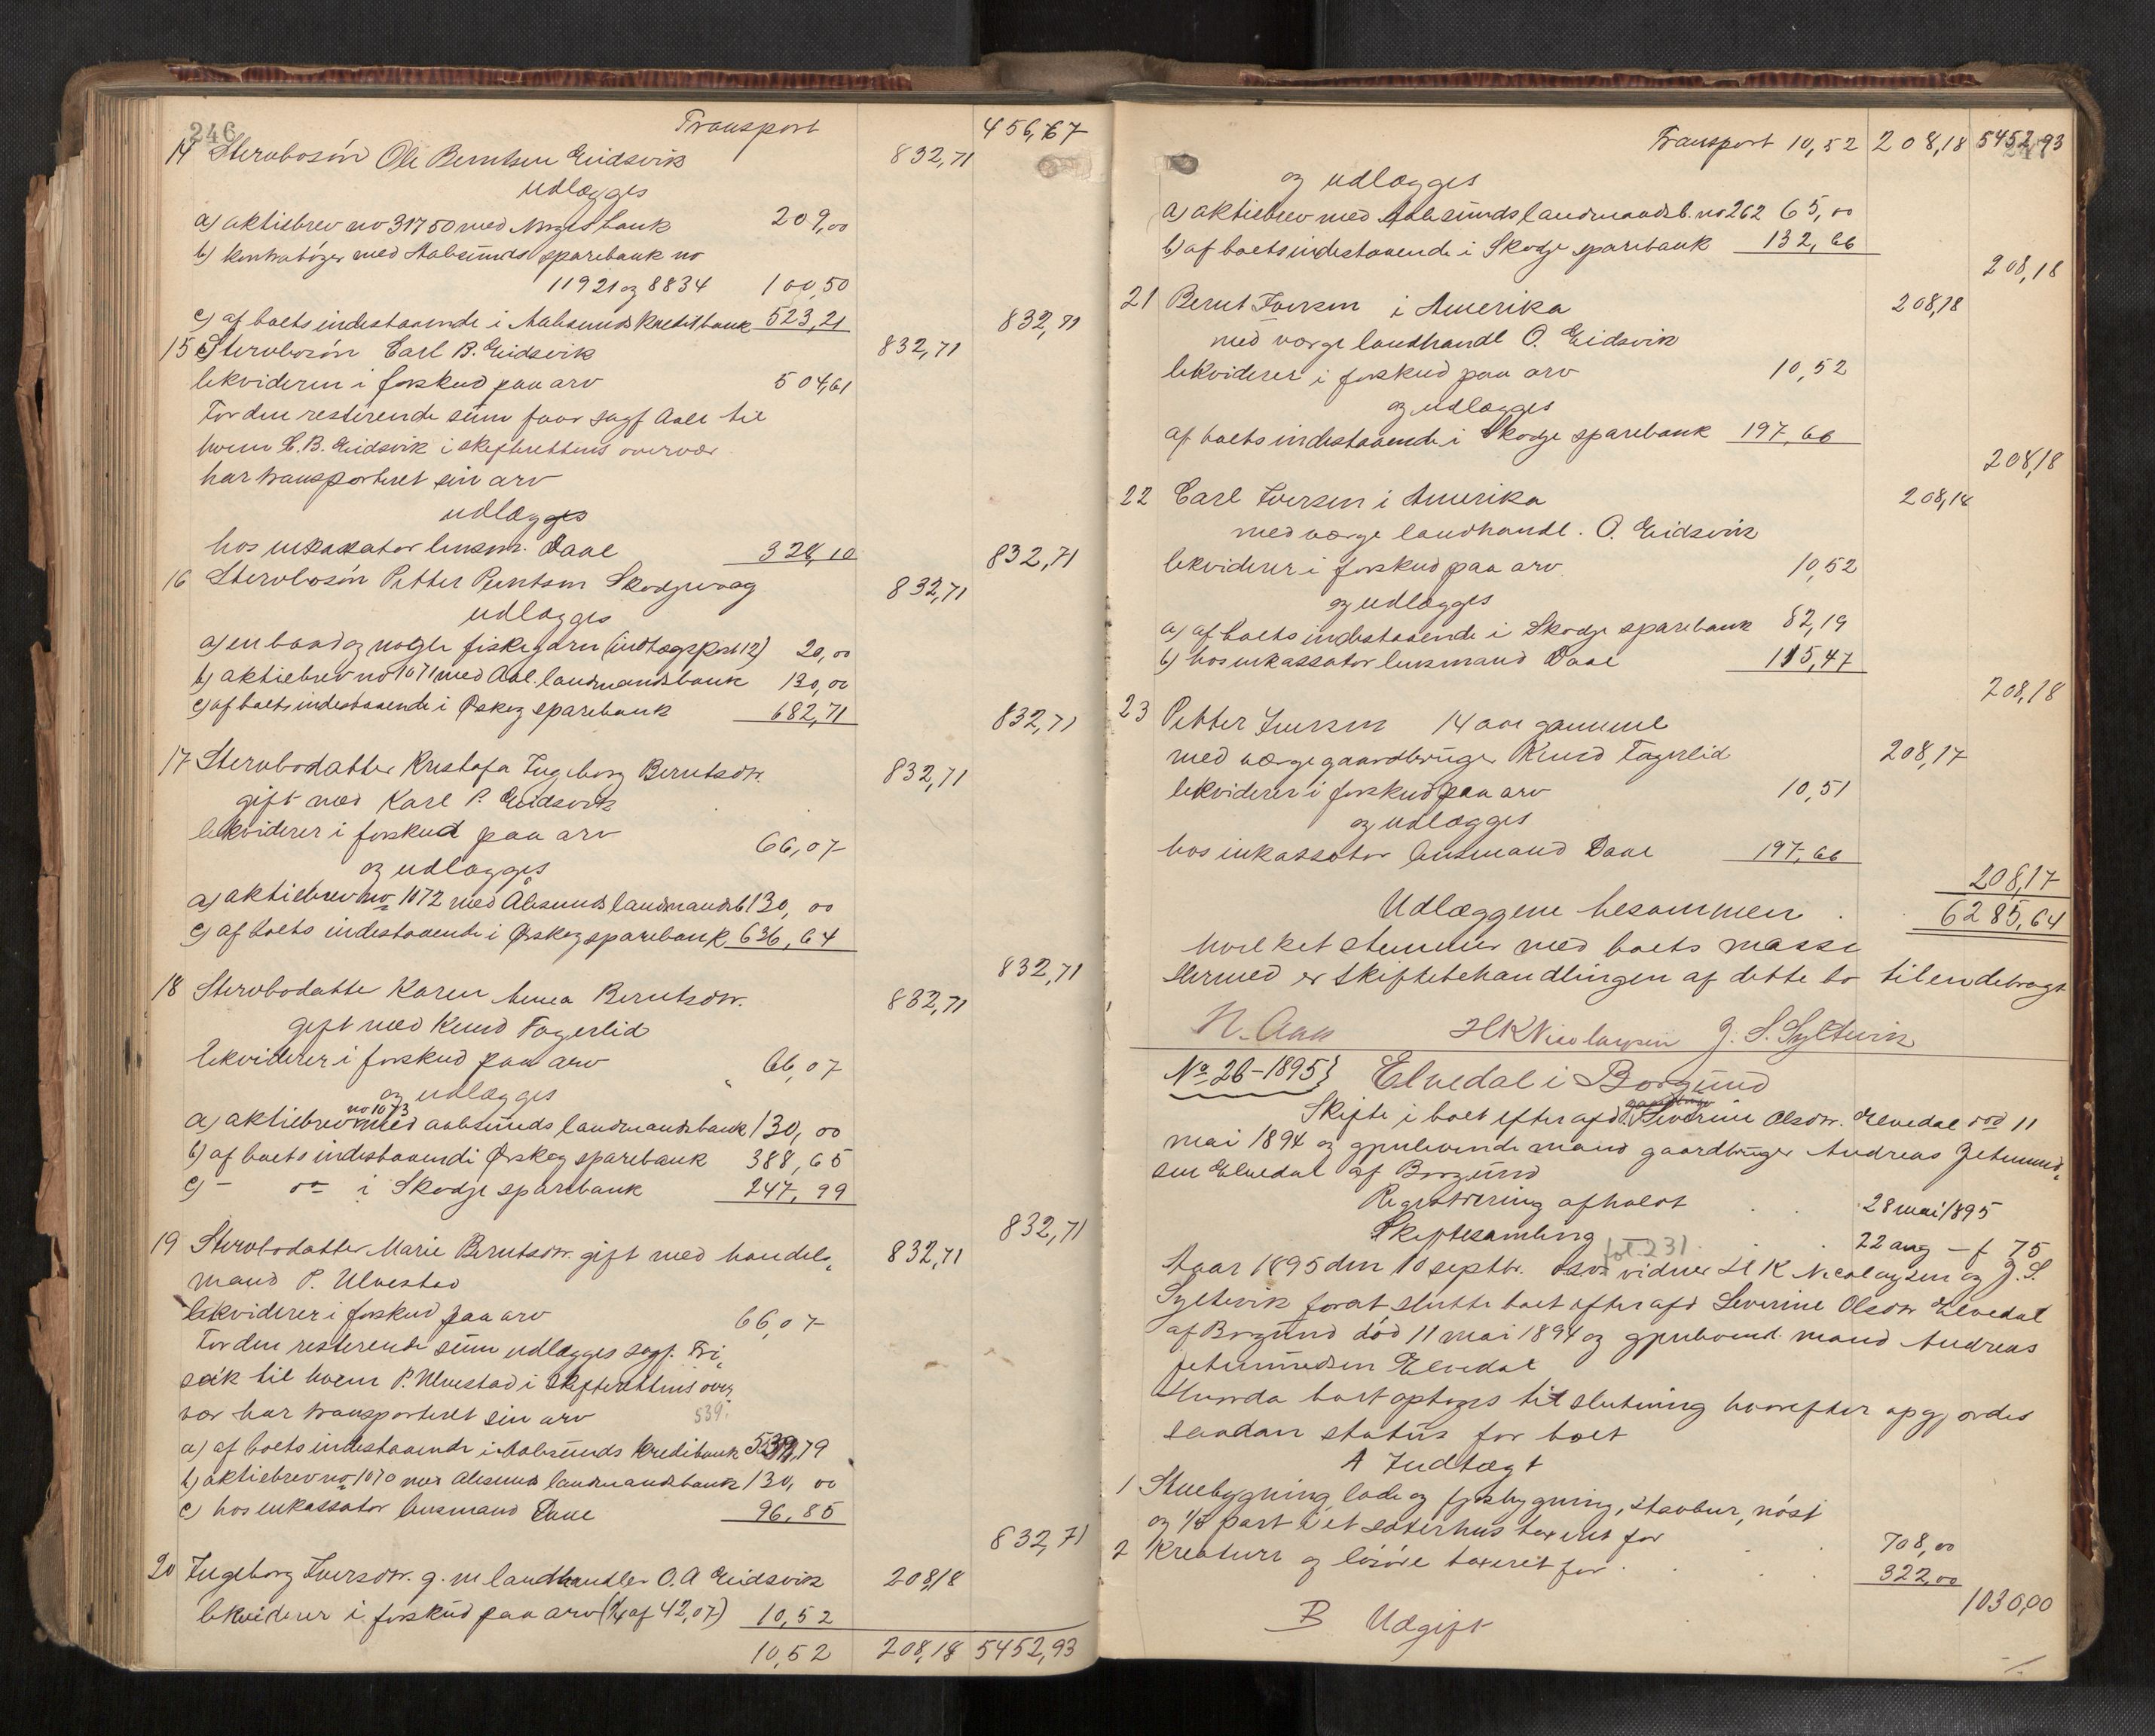 246
Transport 456,67
14 Stervbosön Ole Berntsen Eidsvik 832,71
udlægges
a) aktiebrev no 31750 med Norges bank 209,00
b) kontrabøger med Aalesunds sparebank no
11921 og 8834 100,50
c) af boets indestaaende i Aalesunds Kreditbank 523,21 832,71
15 Stervbosön Carl B. Eidsvik 832,71
likviderer i forskud paa arv 504,61
For den resterende sum faar sagf. Aale til
hvem C. B. Eidsvik i skifterettens overvær
har transporteret sin arv
udlægges
hos inkassator lensm. Daae 328,10 832,71
16 Stervbosön Petter Berntsen Skodjevaag 832,71
udlægges
a) en baad og nogle fiskegarn (indtægtspost 12) 20,00
b) aktiebrev no 1071 med Aal. landmandsbank 130,00
c) af boets indestaaende i Ørskog sparebank 682,71 832,71
17 Stervbodatter Kristofa Ingeborg Berntsdtr. 832,71
gift med Karl P. Eidsvik
likviderer i forskud paa arv 66,07
og udlægges
a) aktiebrev no 1072 med Ålesunds landmandsb 130,00
c) af boets indestaaende i Ørskog sparebank 636,64
832,71
18 Stervbodatte Karen Anna Berntsdtr. 832,71
gift med Knud Fagerlid
likviderer i forskud paa arv 66,07
og udlægges
a) aktiebrev no 1073 med aalesunds landmandsbank 130,00
b) af boets indestaaendi Ørskog sparebank 388,65
c) - do i Skodje sparebank 247,99
832,71
19 Stervbodatter Marie Berntsdtr. gift med handels- 832,71
mand P. Ulvestad
likviderer i forskud paa arv 66,07
For den resterende sum udlægges sagf. Fri-
sak til hvem P. Ulvestad i skifterettens over-
vær har transporteret sin arv 539.
a) af boets indestaaende i Aalesunds Kreditbank 539,79
b) aktiebrev no 1070 med Alesund landmandsbank 130,00
c) hos inkassator lensmand Daae 96,85
832,71
20 Ingeborg Iversdtr. g. m landhandler O. A Eidsvik 208,18
likviderer i forskud paa arv (1/4 af 42,07) 10,52
10,52 208,18 5452,93
247
Transport 10,52 208,18 5452,93
og udlægges
a) aktiebrev med Aalesunds landmandsb. no 262 65,00
b) af boets indestaaende i Skodje sparebank 132,66
208,18
21 Bernt Iversen i Amerika 208,18
med værge landhandl O. Eidsvik
likviderer i forskud paa arv 10,52
og udlægges
af boets indestaaende i Skodje sparebank 197,66
208,18
22 Carl Iversen i Amerika 208,18
med værge landhandl. O. Eidsvik
likviderer i forskud paa arv 10,52
og udlægges
a) af boets indestaaende i Skodje sparebank 82,19
b) hos inkassator lensmand Daae 115,47
208,18
23 Petter Iversen 14 aar gammel 208,17
med værge gaardbruger Knud Fagerlid
likviderer i forskud paa arv 10,51
og udlægges
hos inkassator lensmand Daae 197,66
208,17
Udlæggene tilsammen 6285,64
hvilket stemmer med boets masse
Hermed er skiftebehandlingen af dette bo tilendebragt
N. Aas HKNicolaysen J. S. Syltevik
No 26-1895} Elvedal i Borgund
Skifte i boet efter afd. Severine Olsdtr. Elvedal död 11
mai 1894 og gjenlevende mand gaardbruger Andreas Jetmund-
sen Elvedal af Borgund
Registrering afholdt 28 mai 1895
Skiftesamling 22 aug - f 75
fol 231
Aar 1895 den 10 septbr. osv. vidner H K Nicolaysen og J. S.
Syltevik forat slutte boet efter afd Severine Olsdtr Elvedal
af Borgund död 11 mai 1894 og gjenlevend. mand Andreas
Jetmundsen Elvedal
Hvorda boet optoges til slutning hvorefter opgjordes
saadan status for boet
A Indtægt
1 Stuebygning, lade og fjøsbygning, stavbur, nöst
og 1/5 part i et sæterhus taxeret for 708,00
2 Kreaturer og lösöre taxeret for 322,00
1030,00
B Udgift